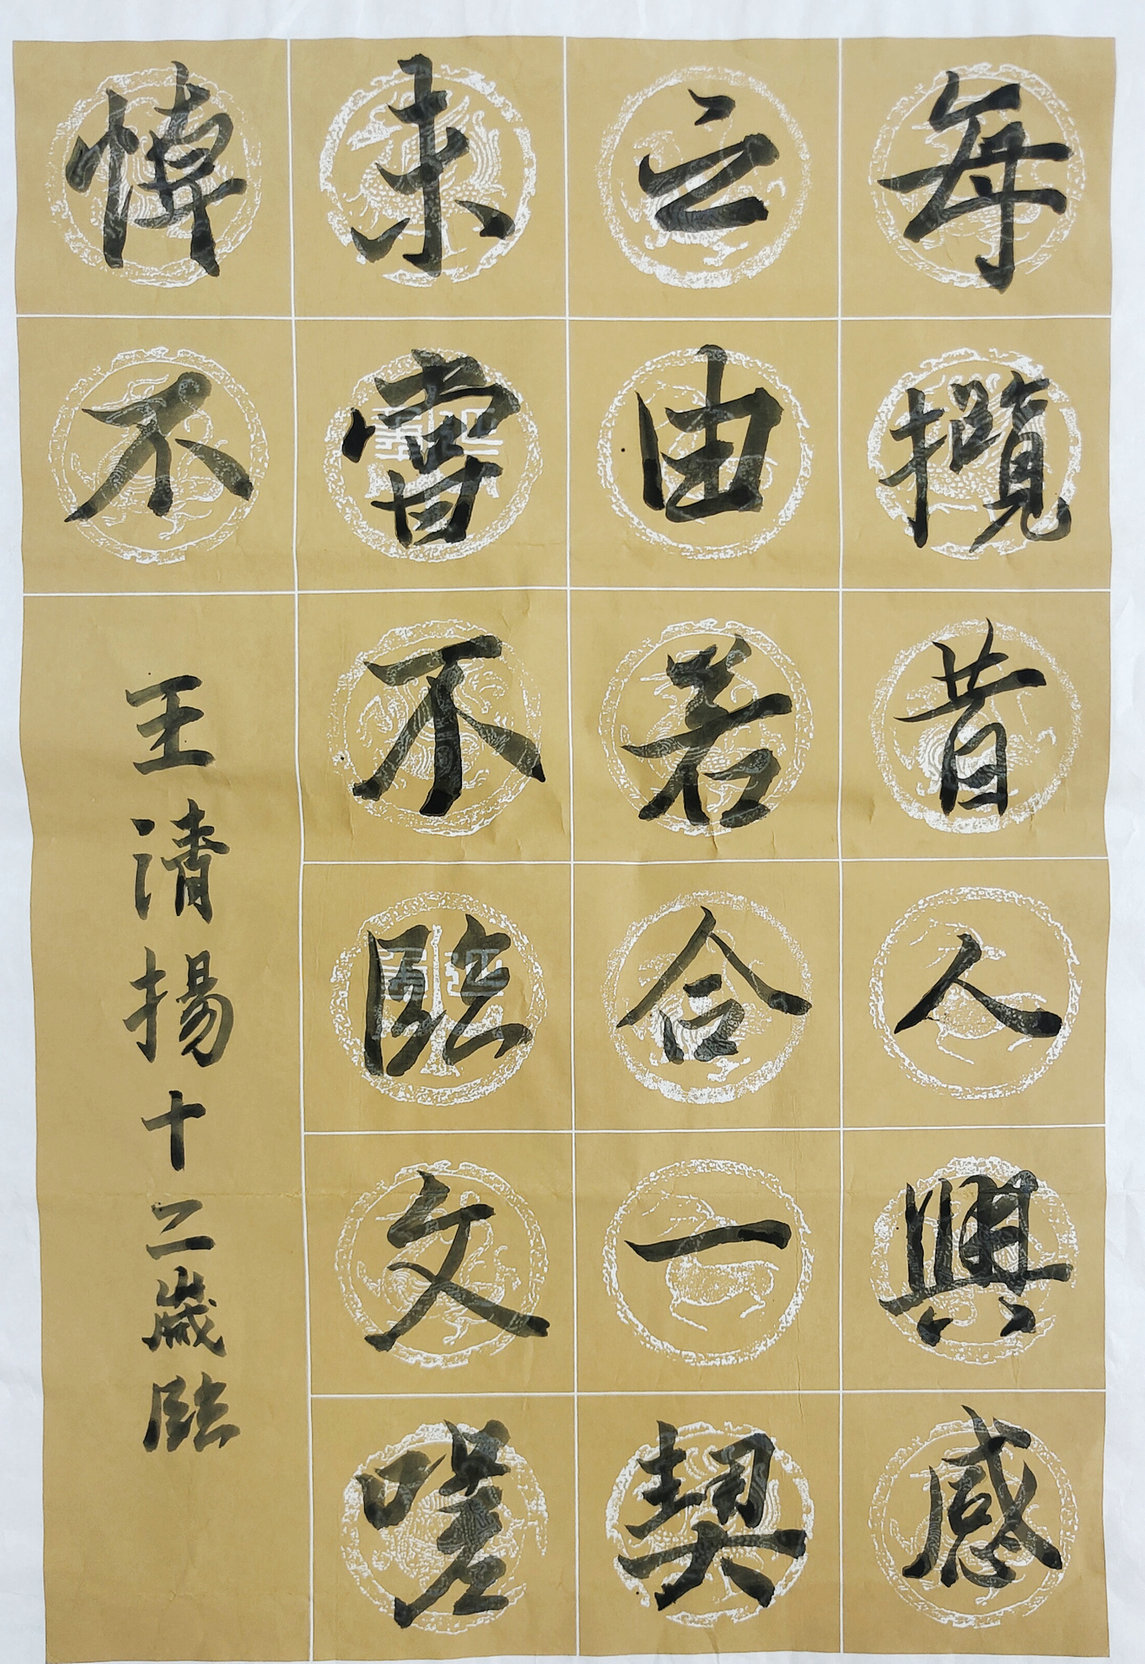 每攬昔人興感
之由若合一契
未嘗不臨文嗟
悼不
王清揚十二歲臨